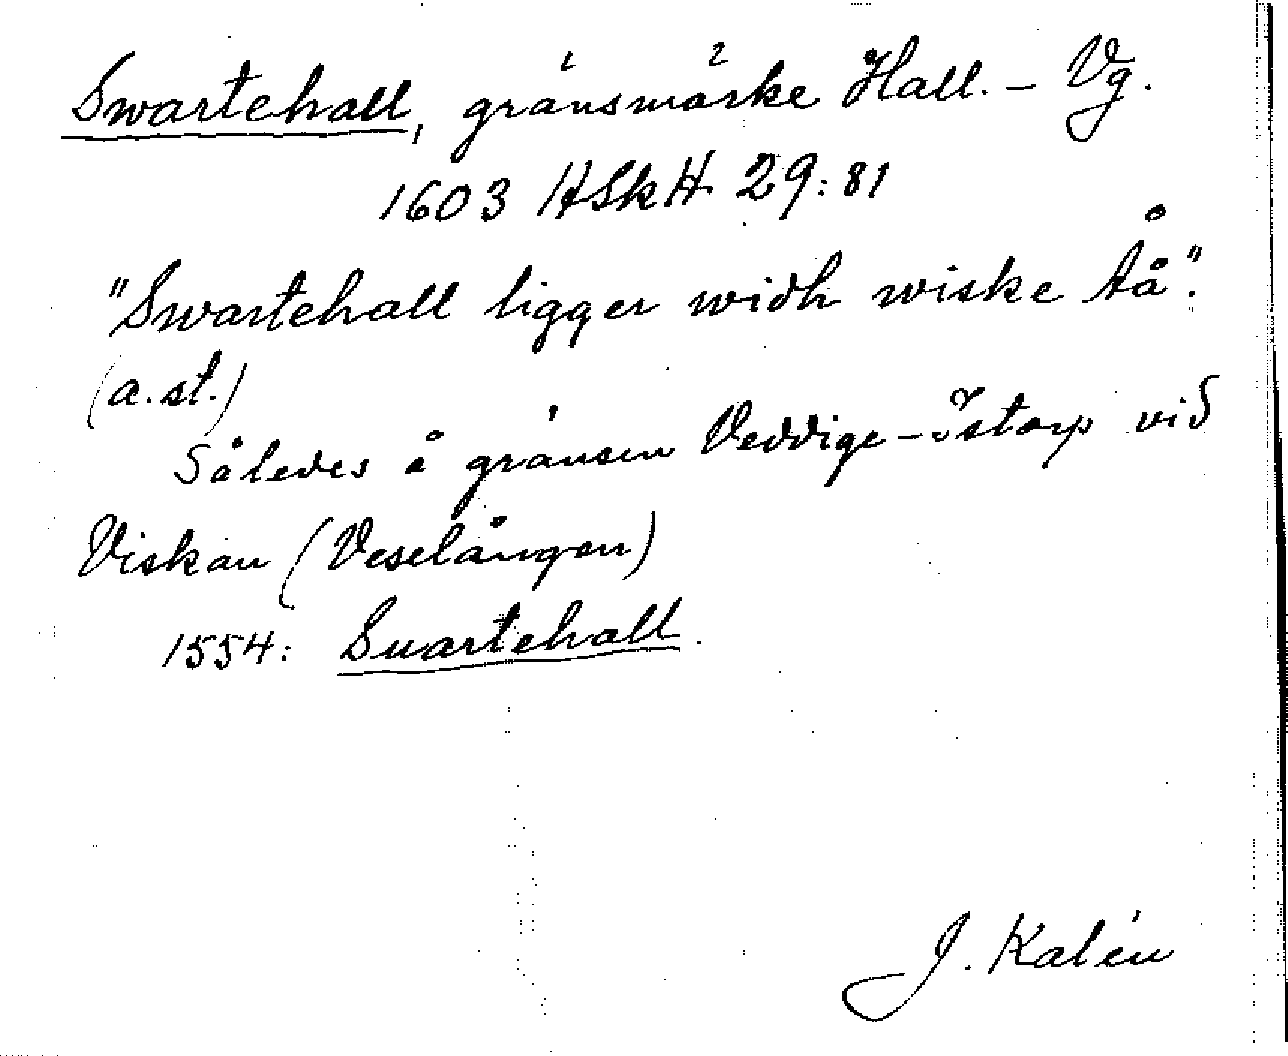 Swartehall, gränsmärke Hall. - Vg.
1603 HSkH 29:81
"Swartehall ligger widh wiske Åå".
(a.st.)
Således å gränsen Veddige-Istorp vid
Viskan (Veselången)
1554: Suartehall.
J. Kalén